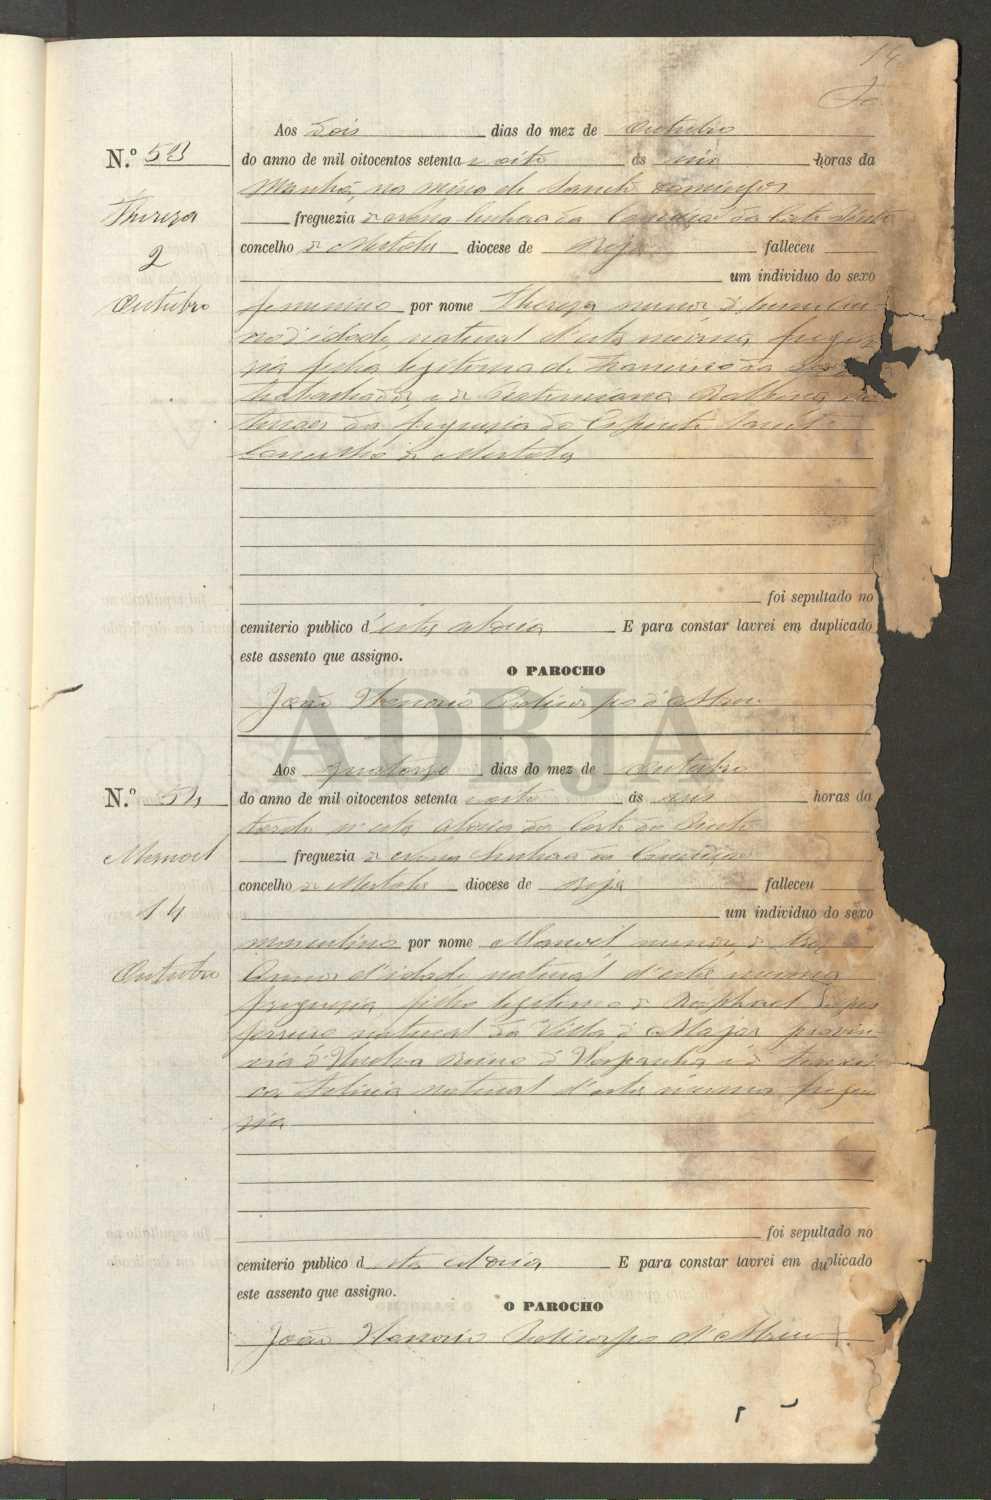 14
Aos dois dias do mez de Outubro
N.º 53
do anno de mil oitocentos setenta e oito ás seis horas da
Manhã, na mina de Sancto Domingos
Thereza
freguezia de Nossa Senhora da Conceição da Corte do Pinto
concelho de Mertola diocese de Beja falleceu
2
um individuo do sexo
Outubro
feminino por nome Thereza menor de
d'idade natural d'esta mesma fregue
sia filha legitima de Francisco da
trabalhador, e de Balbina na
turaes da freguesia do Espirito Sancto
Concelho de Mertola
foi sepultado no
cemiterio publico d'esta aldeia E para constar lavrei em duplicado
este assento que assigno.
O PAROCHO
João Honorio Policarpo d'Abreu
ADBJA
Aos quatorze dias do mez de Outubro
N.º 54
do anno de mil oitocentos setenta e oito ás seis horas da
tarde n'esta aldeia da Corte do Pinto
Manoel
freguezia de Nossa Senhora da Conceição
concelho de Mertola diocese de Beja falleceu
14
um individuo do sexo
masculino por nome Manoel menor, de tres
Outubro
annos d'idade natural d'esta mesma
freguesia filho legitimo de Raphael
ferreiro natural da Villa de provin
cia d'Huelva Reino d'Hespanha e de
Felicia natural d'esta mesma fregue
sia
foi sepultado no
cemiterio publico d'esta aldeia E para constar lavrei em duplicado
este assento que assigno.
O PAROCHO
João Honorio Policarpo d'Abreu